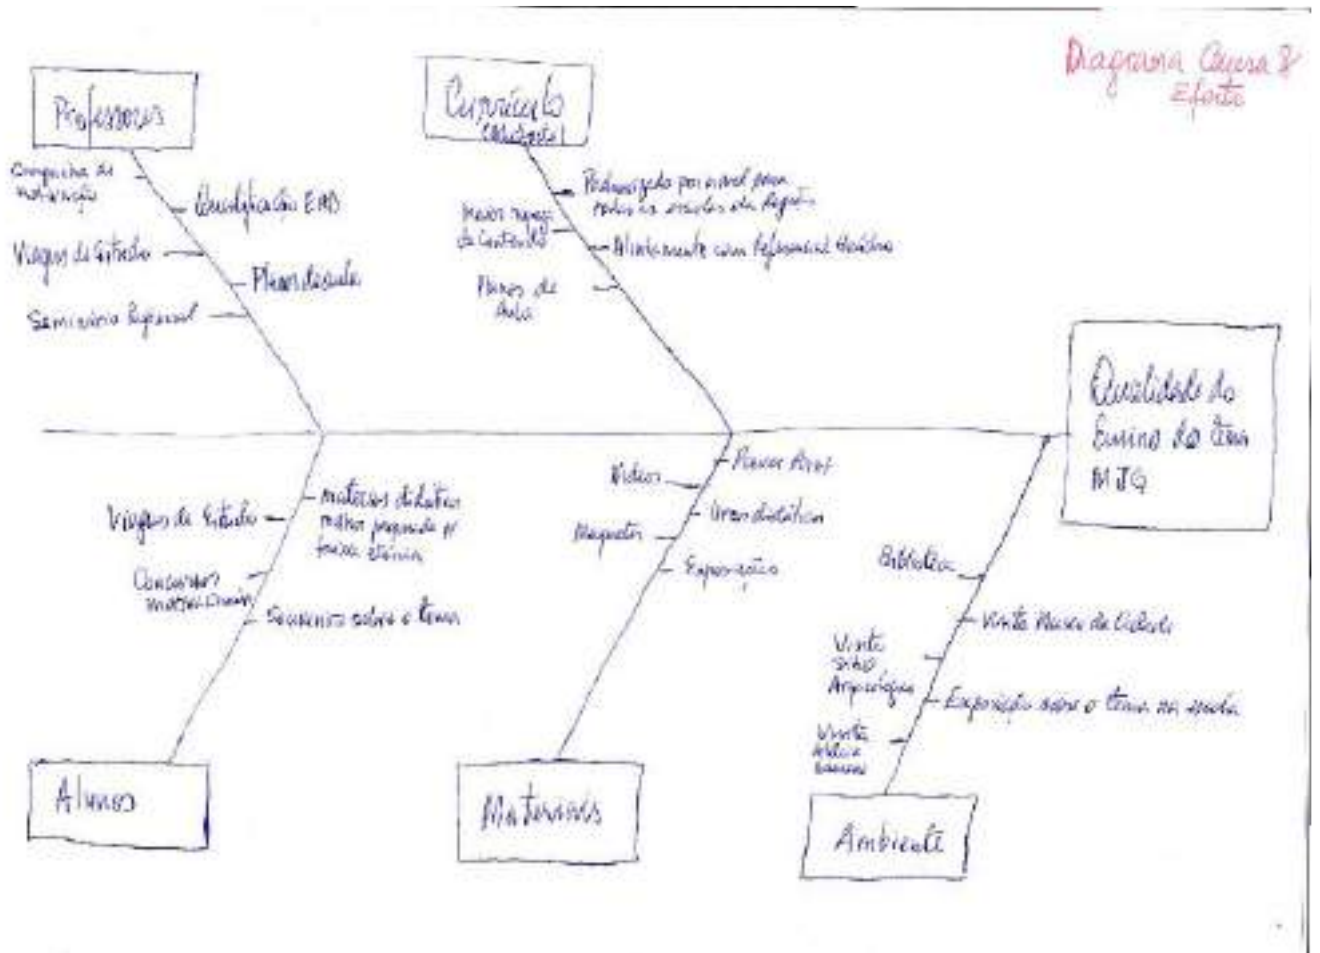 Diagrama Causa &
Efeito
Professores
Campanha de
motivação
Qualificação EAD
Viagens de Estudo
Planos de aula
Seminário Regional
Currículo
Padronizado por nível para
todas as escolas da Região
Maior
de Conteúdo
Alinhamento com Referencial
Planos de
Aula
Qualidade do
Ensino do tema
MJG
Viagens de Estudo
materiais didáticos
melhor preparado p/
faixa etária
Concursos
Souvenirs sobre o tema
Alunos
Vídeos
didáticos
Maquetes
Exposições
Materiais
Biblioteca
Visita Museu da Cidade
Visita
Sítio
Arqueológico
Exposição sobre o tema na escola
Visita
Ambiente